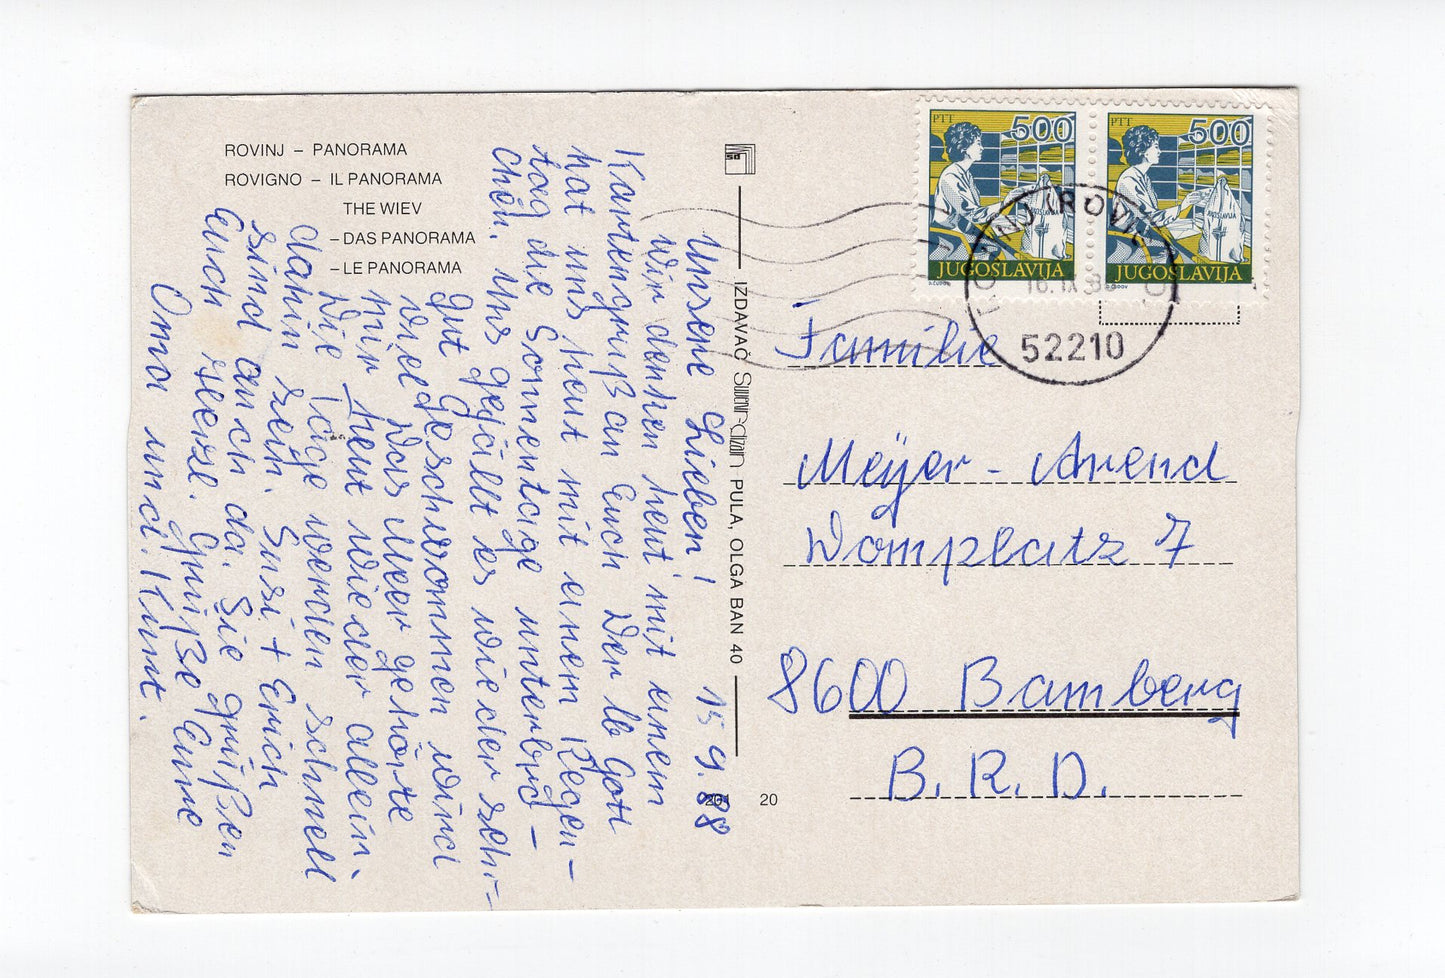 ROVINJ – PANORAMA
ROVIGNO – IL PANORAMA
THE WIEV
– DAS PANORAMA
– LE PANORAMA
IZDAVAČ Suvenir-dizajn PULA, OLGA BAN 40
20
PTT
500
JUGOSLAVIJA
PTT
500
JUGOSLAVIJA
52210
15 9. 88
Unsere Lieben!
Wir denken heut' mit einem
Kartengruß an Euch Der lb Gott
hat uns heut mit einem Regen-
tag die Sonnentage unterbro-
chen. Uns gefällt es wieder seh-
gut Geschwommen wird
viel Das Meer gehörte
mir heut wieder allein.
Die Tage werden schnell
dahin sein. Susi + Erich
sind auch da. Sie grüßen
Euch Grüße Eure
Oma und. Kurt.
Familie
Meÿer - Arend
Domplatz 7
8600 Bamberg
B. R. D.